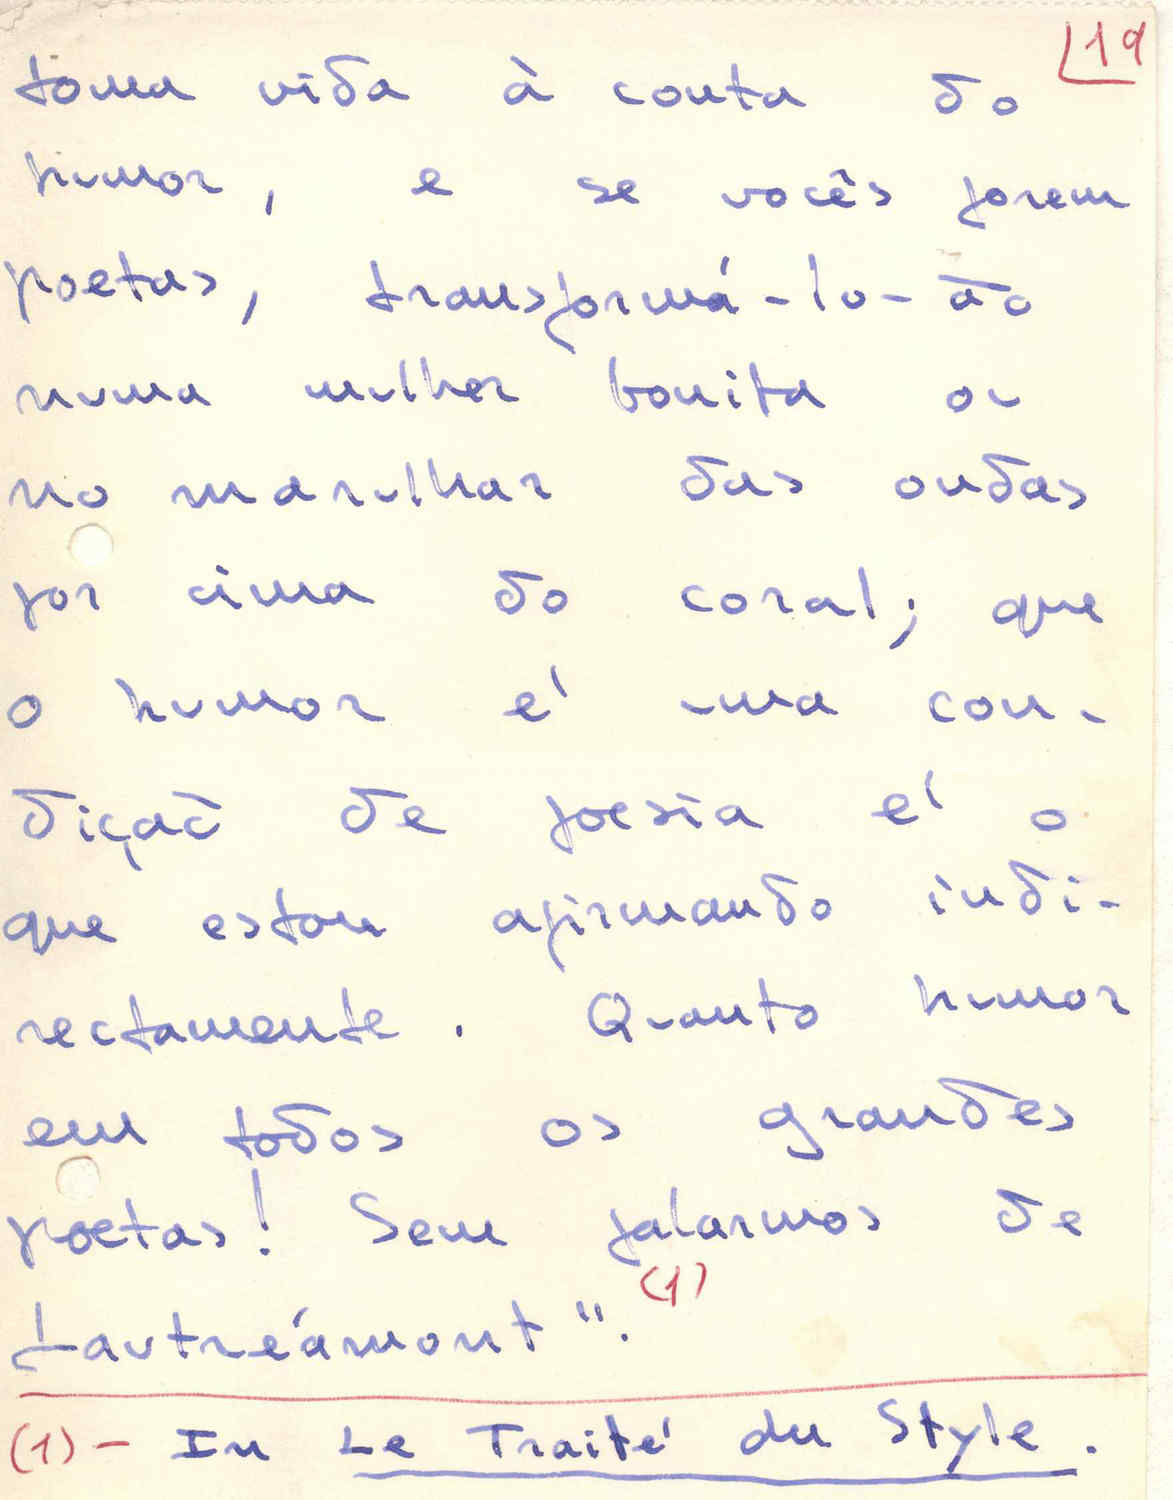 19
toma vida à conta do
humor, e se vocês forem
poetas, transformá-lo-ão
numa mulher bonita ou
no marulhar das ondas
por cima do coral; que
o humor é uma con-
dição de poesia é o
que estou afirmando indi-
rectamente. Quanto humor
em todos os grandes
poetas! Sem falarmos de
Lautréamont". (1)
(1) - In Le Traité du Style.